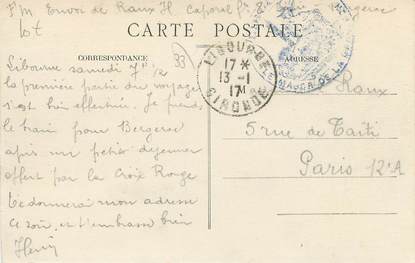 F M Envoi de Raux H Caporal Bergerac
Lot
CARTE POSTALE
CORRESPONDANCE
ADRESSE
33
LIBOURNE
17 *
13 - 1
17
GIRONDE
Libourne samedi 7h 1/2
la première partie du voyage
s'est bien effectuée. Je prends
le train pour Bergerac
après un petit déjeuner
offert par la Croix Rouge
Je donnerai mon adresse
ce soir, et t'embrasse bien
Henry
Raux
5 rue de Taïti
Paris 12eA
MAJOR DE LA